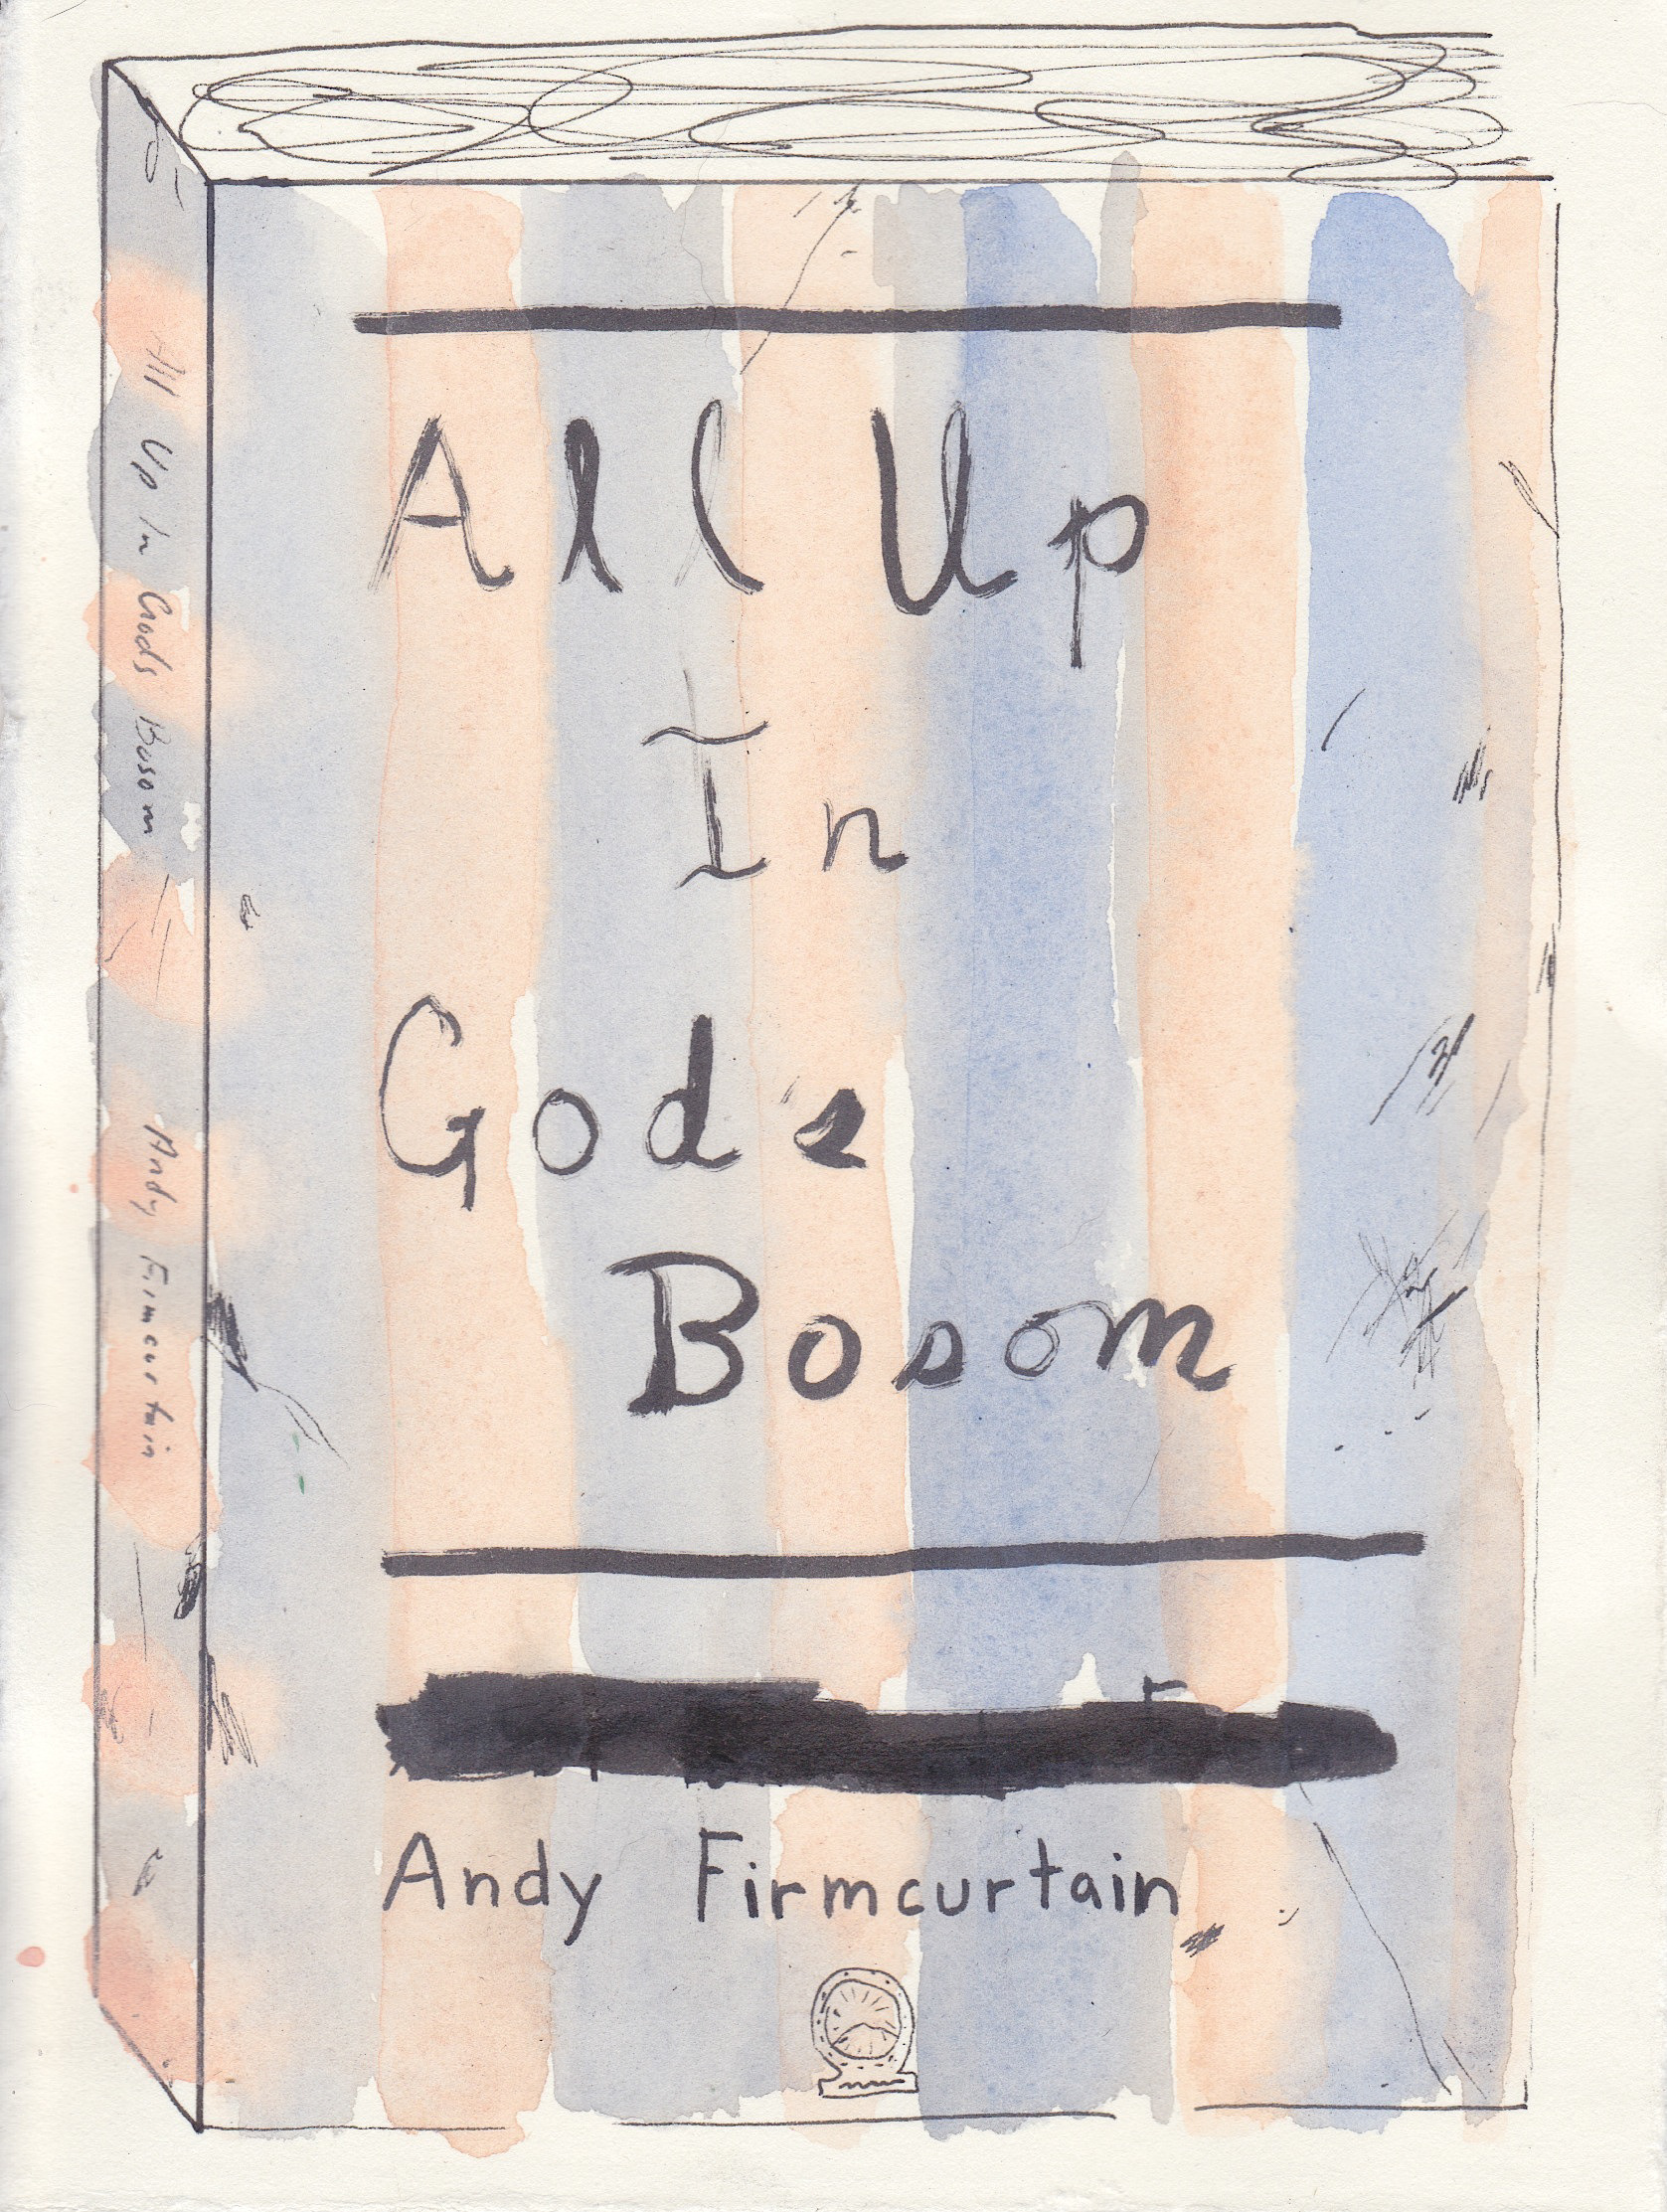 All Up
In
God's
Bosom
Andy Firmcurtain
All Up In Gods Bosom
Andy Firmcurtain